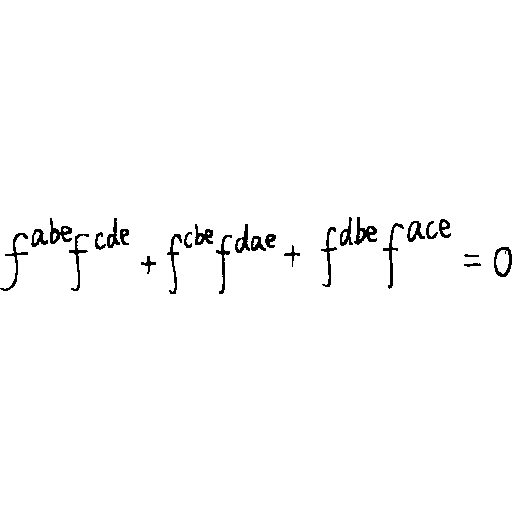 f^{abe}f^{cde} + f^{cbe}f^{dae} + f^{dbe}f^{ace} = 0